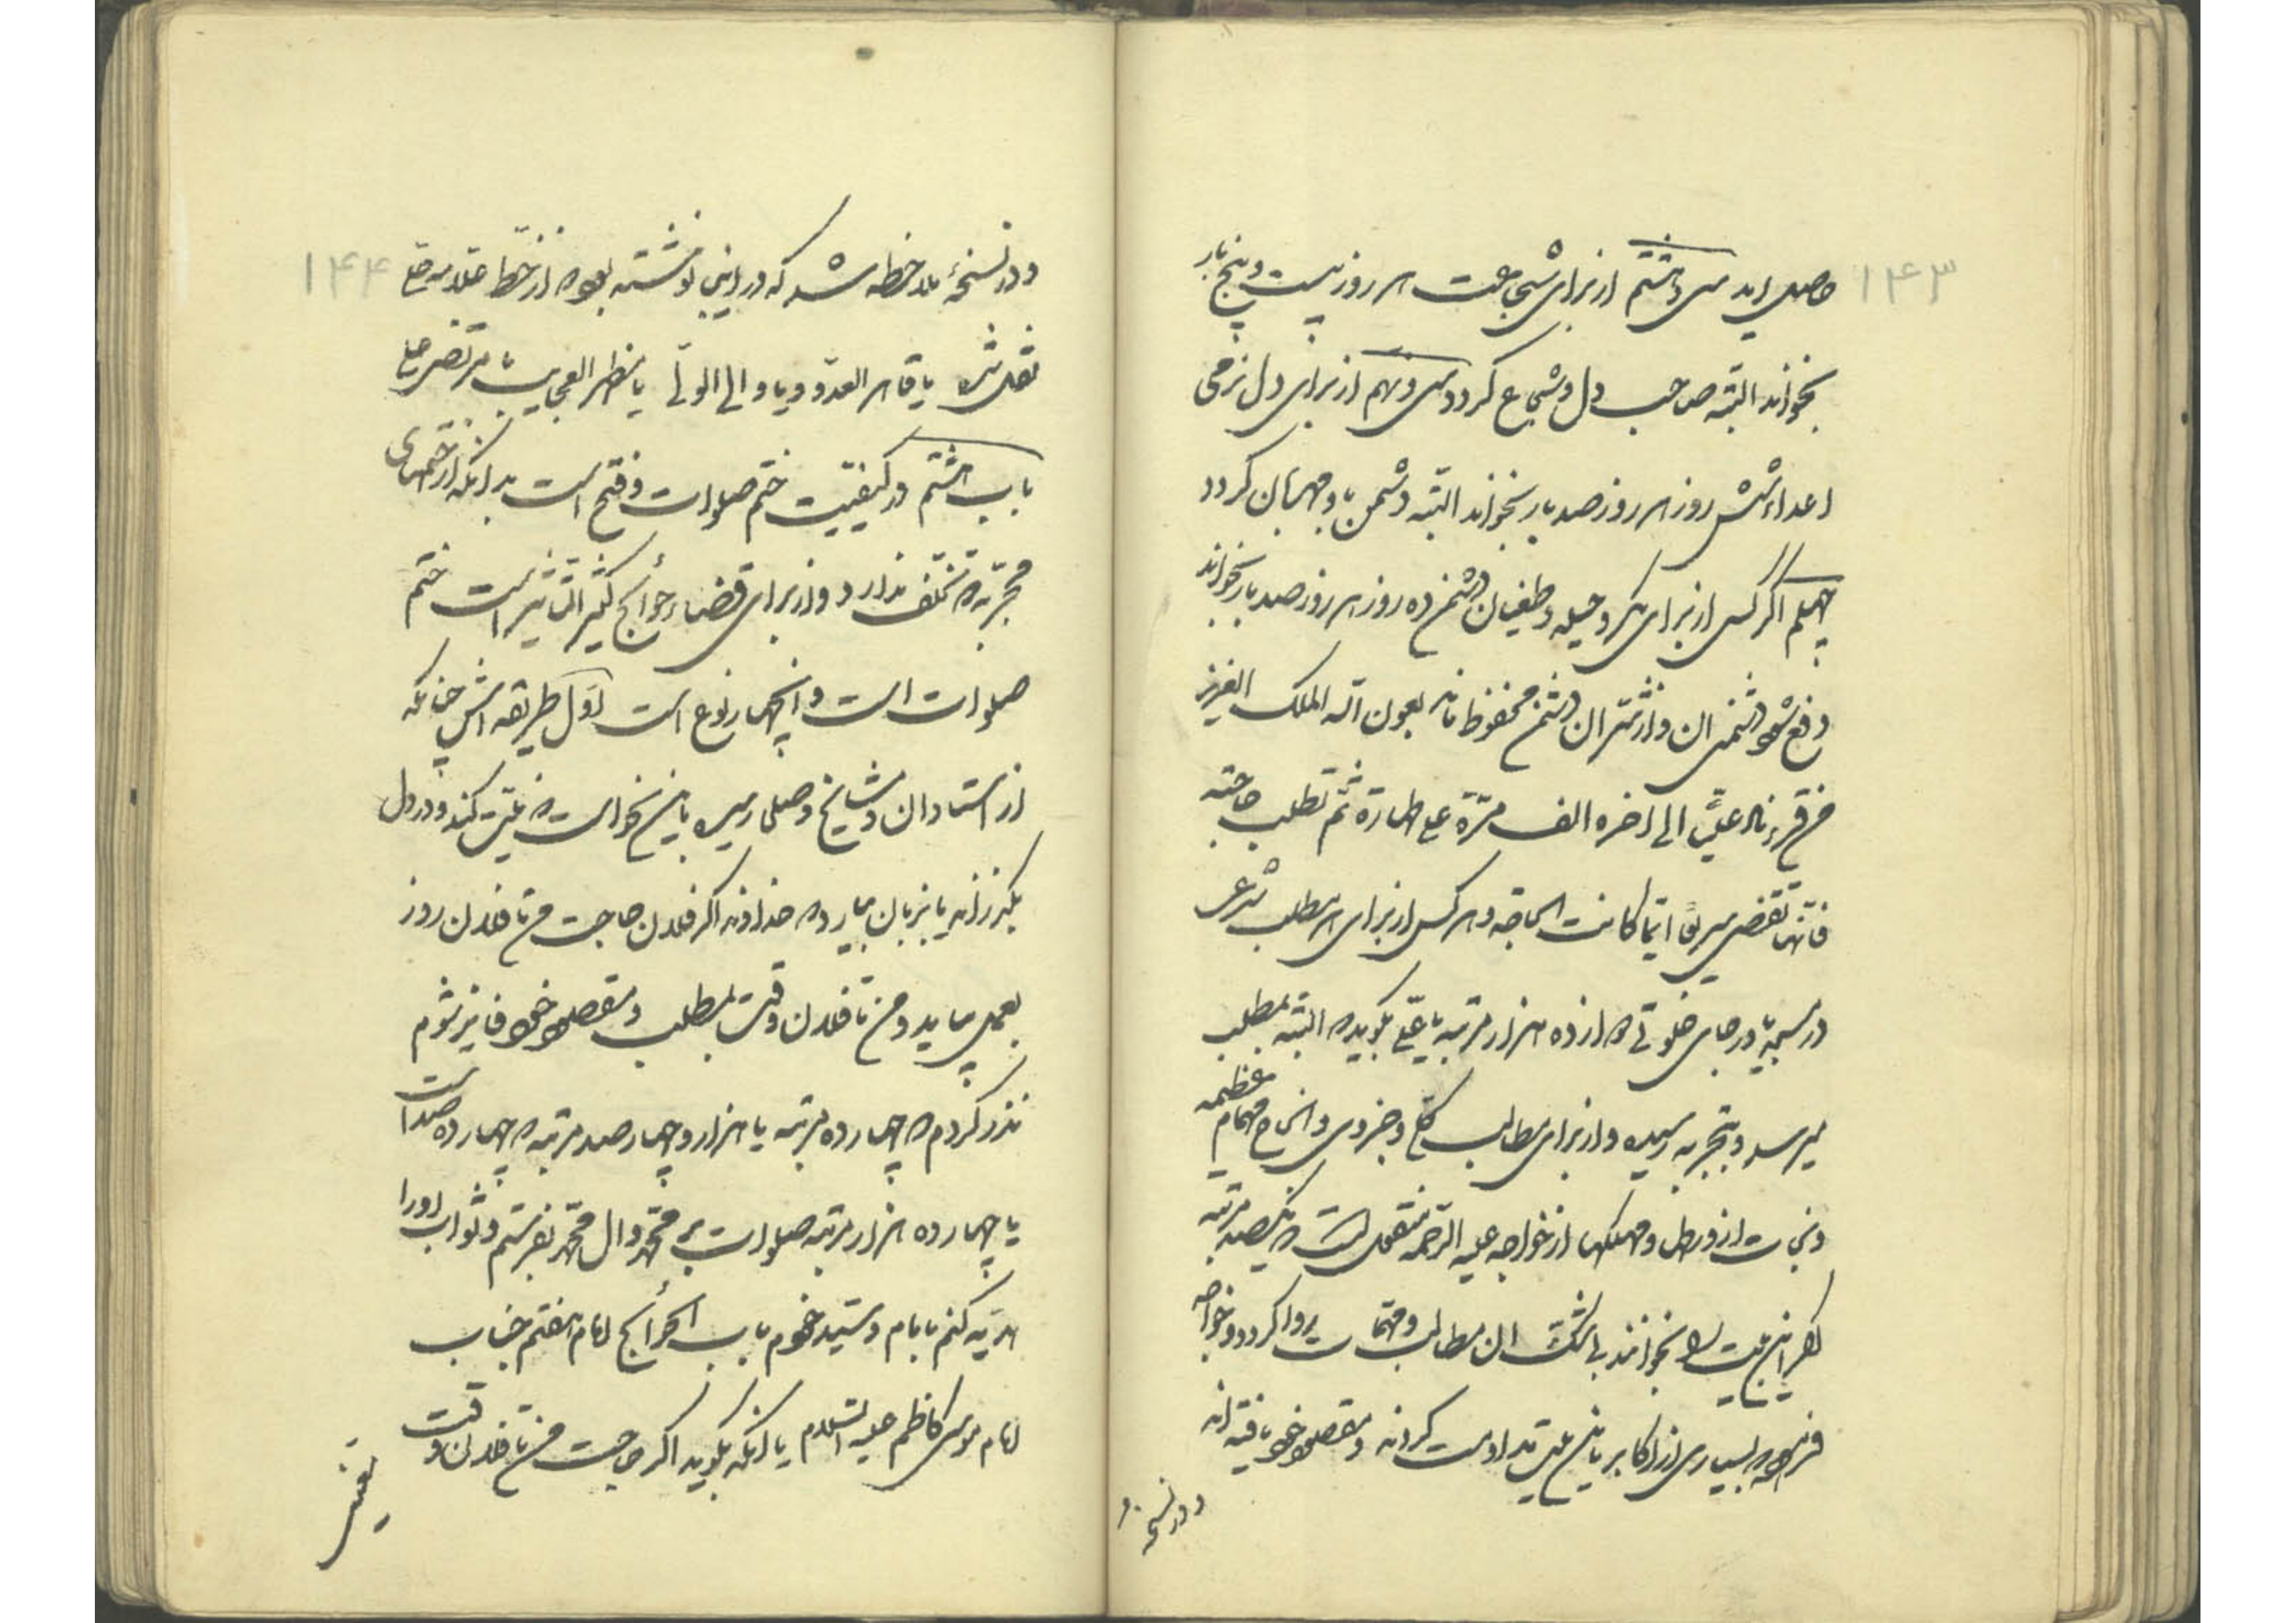 ۱۴۳
حاصل اید سی و هشتم از برای شجاعت هر روز بیست و پنج بار
بخواند البته صاحب دل و شجاع کردد سی و نهم از برای دل نرمی
اعداء شش روز هر روز صد بار بخواند البته دشمن با و مهربان کردد
چهلم اکر کسی از برای مکر و حیله و طغیان دشمن ده روز هر روز صد بار بخواند
دفع شود دشمنی ان و از شر ان دشمن محفوظ ماند بعون الله الملک العزیز
من قرء ناد علیّ الی اخره الف مرّة علی طهارة ثم تطلب حاجته
فانّها تقضی سریعًا ایّما کانت الحاجه و هر کس از برای هر مطلب شرعی
در مسجد یا در جای خلوتی دوازده هزار مرتبه یا علیّ بکوید البته بمطلب
میرسد و بتجربه رسیده و از برای مطالب کلی و جزوی و انجاح مهام عظیمه
و نجات از ورطها و مهلکها از خواجه علیه الرحمه منقول است که یکصد مرتبه
این بیت را بخوانند بی شک ان مطالب و مهمّات روا کردد و خواجه
فرموده بسیاری از اکابر باین بیت مداومت کردند و مقصود خود یافته اند
و در نسخه
۱۴۴
و در نسخهٔ ملاحظه شد که در این نوشته بود از خط علامه حلی
نقل شده یا قاهر العدّو و یا والی الولیّ یا مظهر العجایب یا مرتضی علی
باب هشتم در کیفیّت ختم صلوات و فتح است بدانکه از ختمهای
مجرّبه که تخلف ندارد و از برای قضاء حوائج کثیر التاثیر است ختم
صلوات است و ان چهار نوع است اوّل طریقه اش چنانکه
از استادان و مشایخ و صلحا رسیده باین نحو است که نیّت کند و در دل
بکذراند یا بزبان بیاورد که خداوندا اکر فلان حاجت من تا فلان روز
بعمل بیاید و من تا فلان وقت بمطلب و مقصود خود فایز شوم
نذر کردم که چهارده مرتبه یا هزار و چهار صد مرتبه که چهارده صد است
یا چهارده هزار مرتبه صلوات بر محمّد و ال محمّد بفرستم و ثواب او را
هدیّه کنم بامام و سیّد خودم باب الحوائج امام هفتم جناب
امام موسی کاظم علیه السّلام یا انکه بکوید اکر حاجت من تا فلان وقت